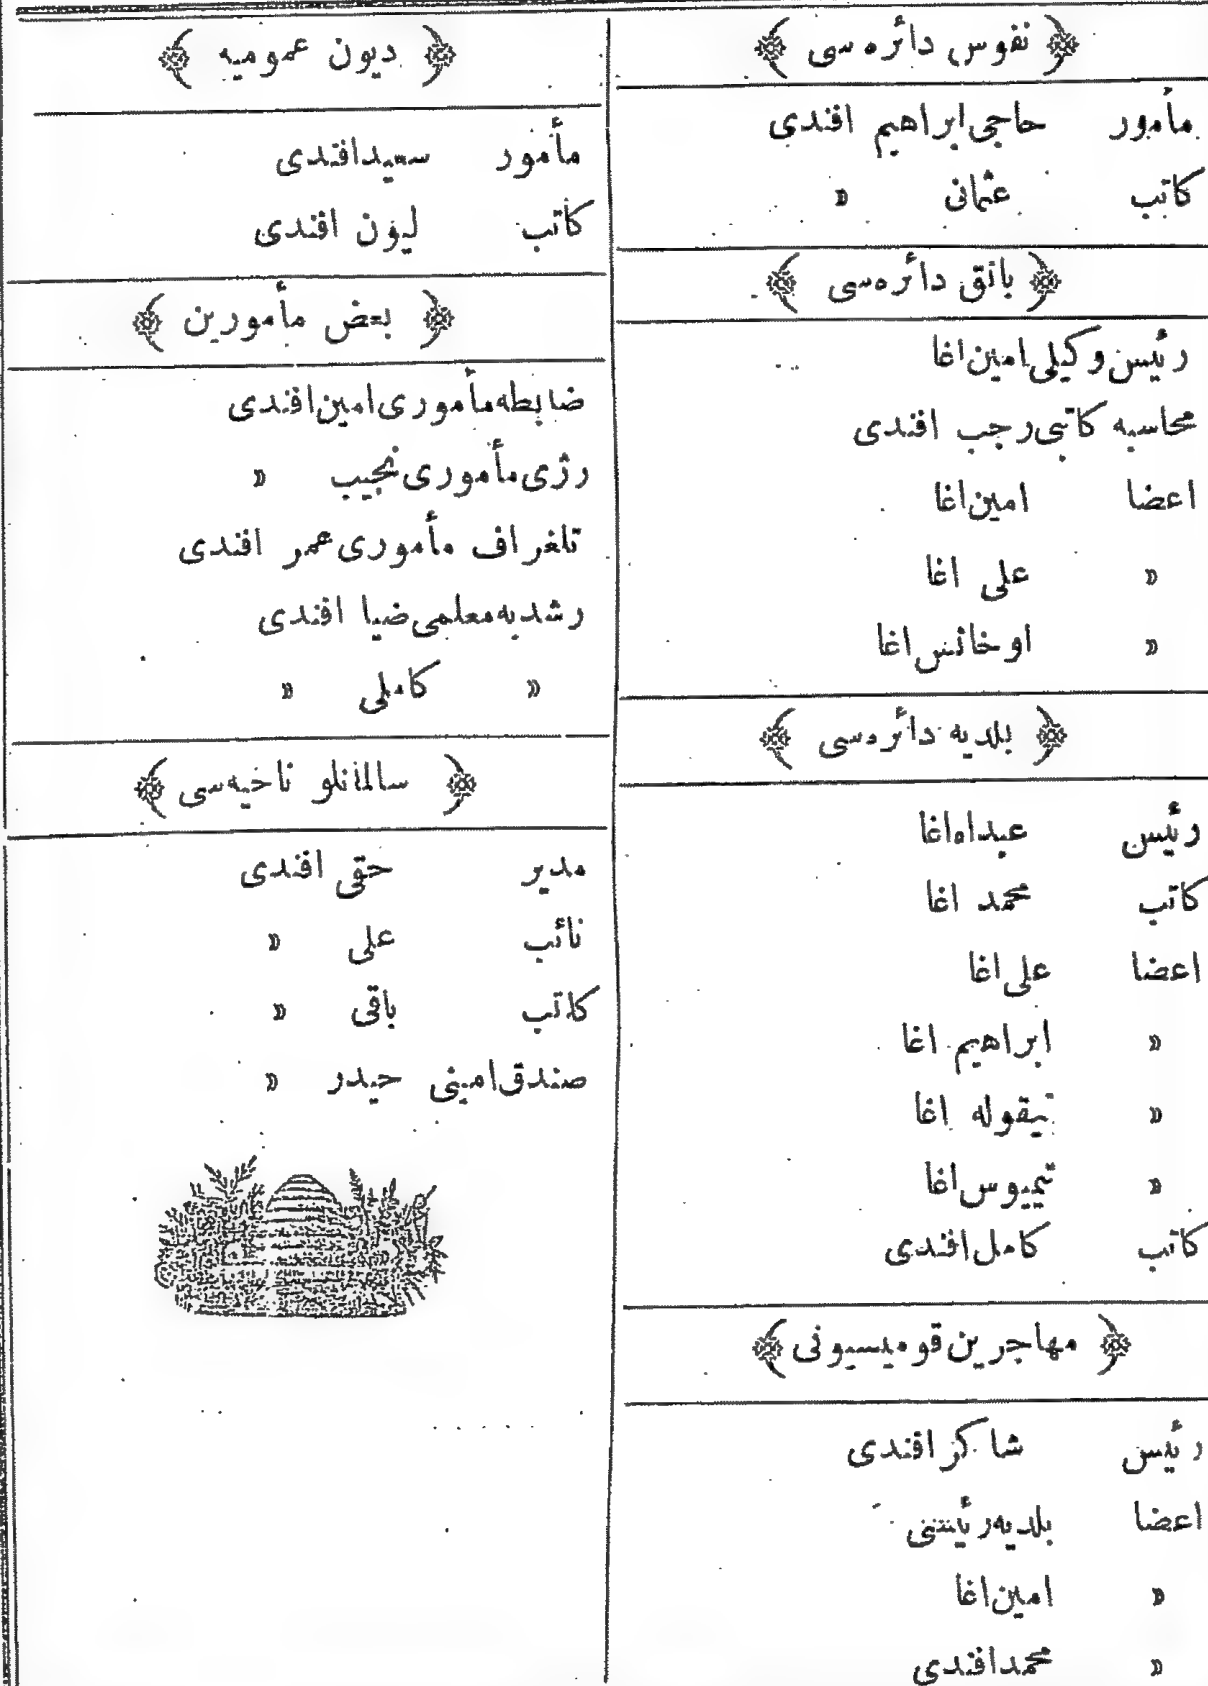 ﴿ نفوس دائره سی ﴾
مأمور حاجی ابراهیم افندی
كاتب عثمانی »
﴿ بانق دائره سی ﴾
رئیس وكیلی امین اغا
محاسبه كاتبی رجب افندی
اعضا امین اغا
» علی اغا
» اوخانس اغا
﴿ بلدیه دائره سی ﴾
رئیس عبداه اغا
كاتب محمد اغا
اعضا علی اغا
» ابراهیم اغا
» نیقوله اغا
» اغا
كاتب كامل افندی
﴿ مهاجرین قومیسیونی ﴾
رئیس شاكر افندی
اعضا بلدیه رئیسی
» امین اغا
» محمد افندی
﴿ دیون عمومیه ﴾
مأمور سعید افندی
كاتب لیون افندی
﴿ بعض مأمورین ﴾
ضابطه مأموری امین افندی
رژی مأموری نجیب »
تلغراف مأموری عمر افندی
رشدیه معلمی ضیا افندی
» كاملی »
﴿ سالمانلو ناحیه سی ﴾
مدیر حقی افندی
نائب علی »
كاتب باقی »
صندق امینی حیدر »